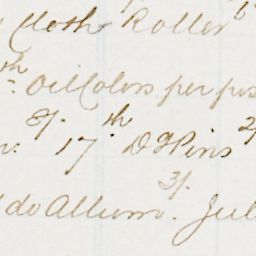 Cloth Roller
th Oil Colors per pos
8/. 17th D Pins 2/
3/.
do Allum. Jul